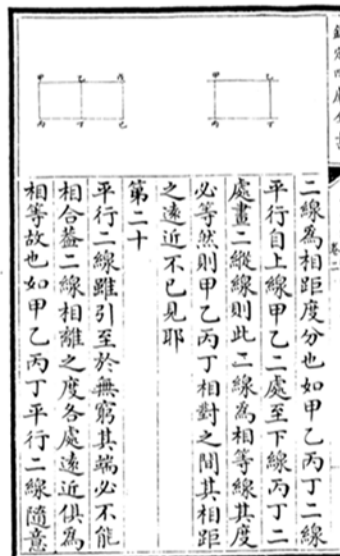 欽定四庫全書
卷二
甲 乙
丙 丁
甲 乙 戊
丙 丁 己
二線為相距度分也如甲乙丙丁二線
平行自上線甲乙二處至下線丙丁二
處畫二縱線則此二線為相等線其度
必等然則甲乙丙丁相對之間其相距
之遠近不已見耶
第二十
平行二線雖引至於無窮其端必不能
相合葢二線相離之度各處遠近俱為
相等故也如甲乙丙丁平行二線隨意